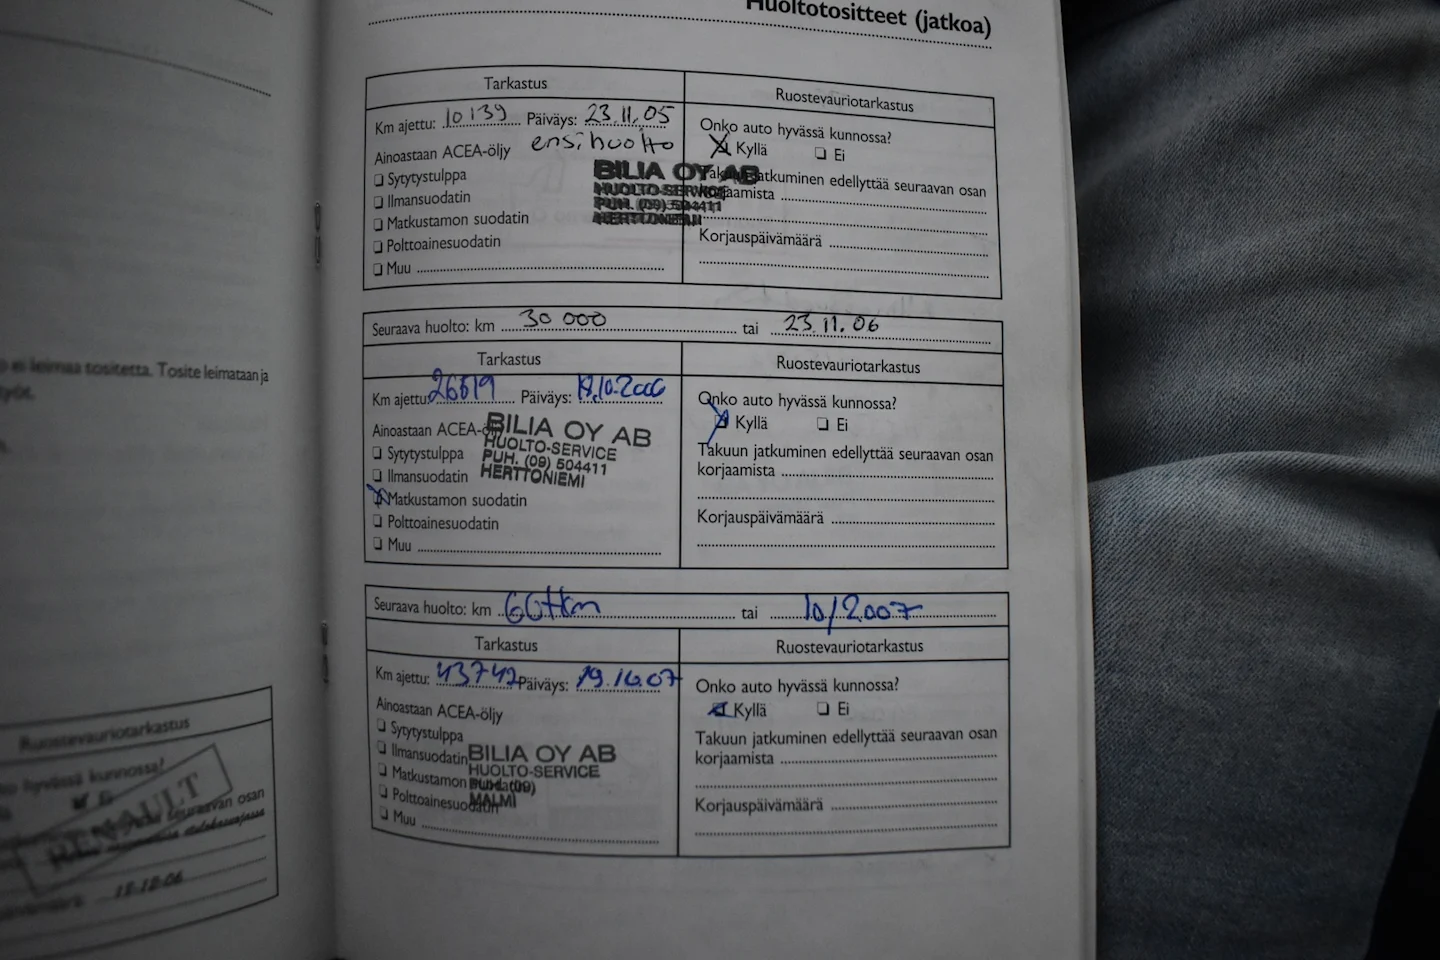 ei leimaa tositetta. Tosite leimataan ja
Ruostevauriotarkastus
hyvässä kunnossa?
RENAULT
seuraavan osan
15.12.06
Huoltotositteet (jatkoa)
Tarkastus
Ruostevauriotarkastus
Km ajettu: 10139 Päiväys: 23.11.05
ensihuolto
Onko auto hyvässä kunnossa?
Kyllä Ei
Ainoastaan ACEA-öljy
BILIA OY AB
HUOLTO-SERVICE
PUH. (09) 504411
HERTTONIEMI
Sytytystulppa
Ilmansuodatin
Matkustamon suodatin
Polttoainesuodatin
Muu
Takuun jatkuminen edellyttää seuraavan osan
korjaamista
Korjauspäivämäärä
Seuraava huolto: km 30 000 tai 23.11.06
Tarkastus
Ruostevauriotarkastus
Km ajettu: 26619 Päiväys: 19.10.2006
Onko auto hyvässä kunnossa?
Kyllä Ei
Ainoastaan ACEA-öljy
BILIA OY AB
HUOLTO-SERVICE
PUH. (09) 504411
HERTTONIEMI
Sytytystulppa
Ilmansuodatin
Matkustamon suodatin
Polttoainesuodatin
Muu
Takuun jatkuminen edellyttää seuraavan osan
korjaamista
Korjauspäivämäärä
Seuraava huolto: km 60tkm tai 10/2007
Tarkastus
Ruostevauriotarkastus
Km ajettu: 43742 Päiväys: 19.10.07
Onko auto hyvässä kunnossa?
Kyllä Ei
Ainoastaan ACEA-öljy
Sytytystulppa
Ilmansuodatin
Matkustamon suodatin
Polttoainesuodatin
Muu
BILIA OY AB
HUOLTO-SERVICE
PUH. (09)
MALMI
Takuun jatkuminen edellyttää seuraavan osan
korjaamista
Korjauspäivämäärä